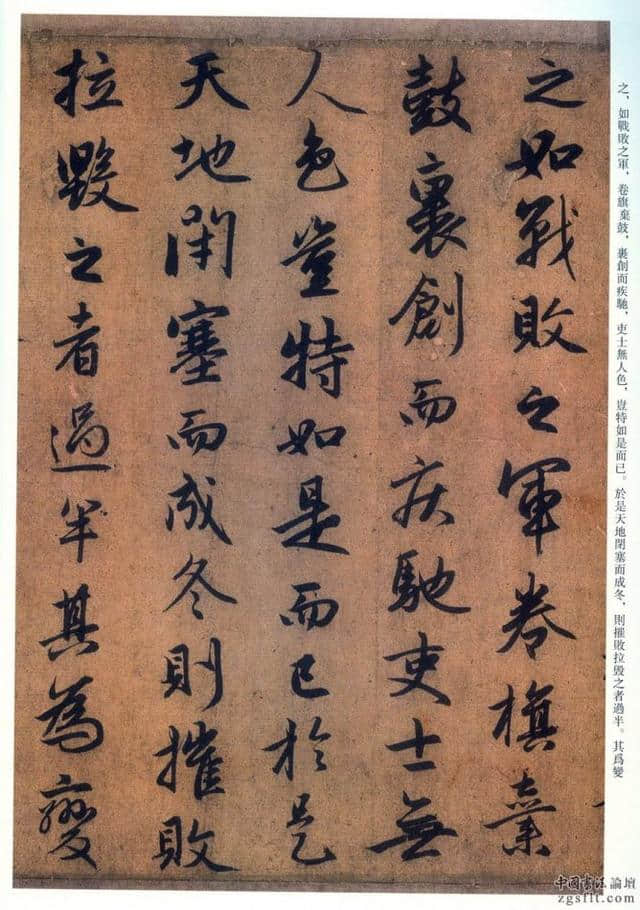 之如戰敗之軍卷旗棄
鼓裹創而疾馳吏士無
人色豈特如是而已於是
天地閉塞而成冬則摧敗
拉毀之者過半其為變
之、如戰敗之軍、卷旗棄鼓、裹創而疾馳、吏士無人色、豈特如是而已。於是天地閉塞而成冬、則摧敗拉毀之者過半。其爲變
中国书法論壇
zgsflt.com